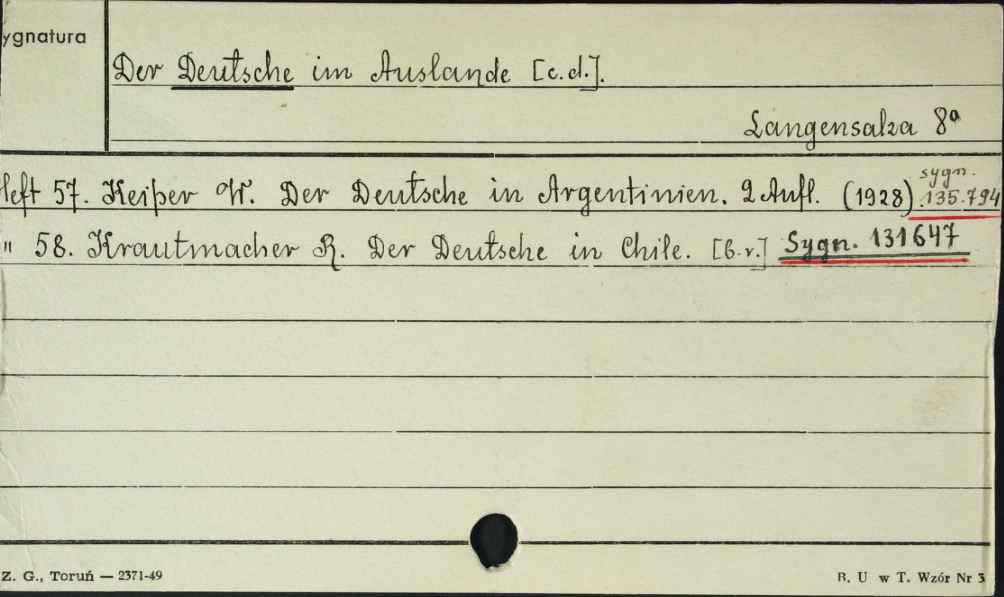 ygnatura
Der Deutsche im Auslande [c.d.].
Langensalza 8ᵃ
Heft 57. Keiper W. Der Deutsche in Argentinien. 2 Aufl. (1928) sygn. 135.794
" 58. Krautmacher R. Der Deutsche in Chile. [b.r.] Sygn. 131647
Z. G., Toruń — 2371-49
B. U w T. Wzór Nr 3